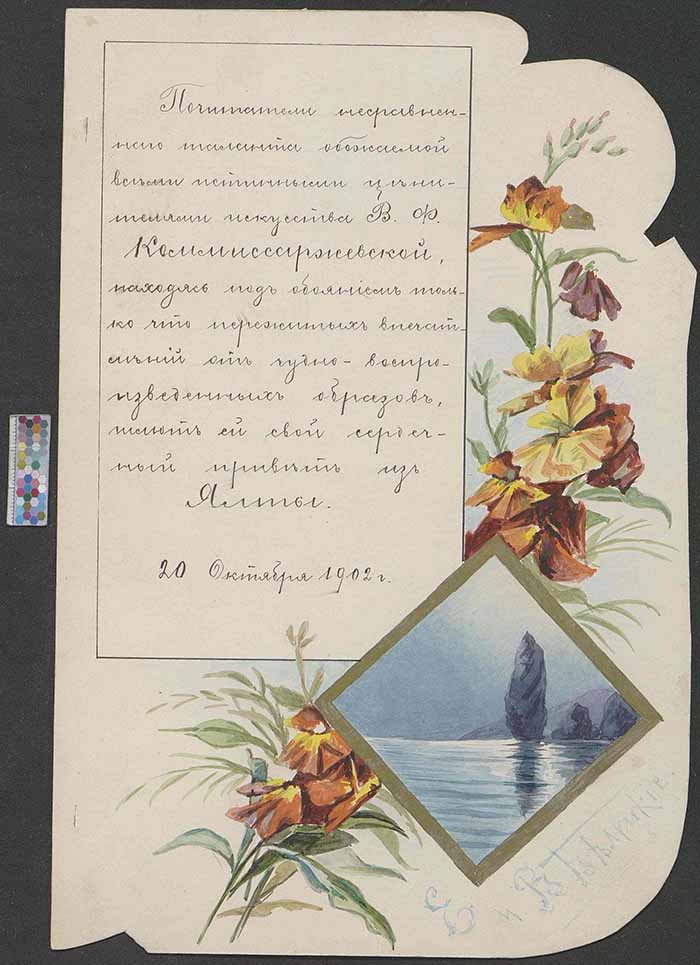 Почитатели несравнен-
наго таланта обожаемой
всѣми истинными цѣни-
телями искусства В. Ф.
Коммиссаржевской,
находясь подъ обояніемъ толь-
ко что пережитыхъ впечат-
лѣній отъ чудно-воспро-
изведенныхъ образовъ,
шлютъ ей свой сердеч-
ный привѣтъ изъ
Ялты.
20 Октября 1902 г.